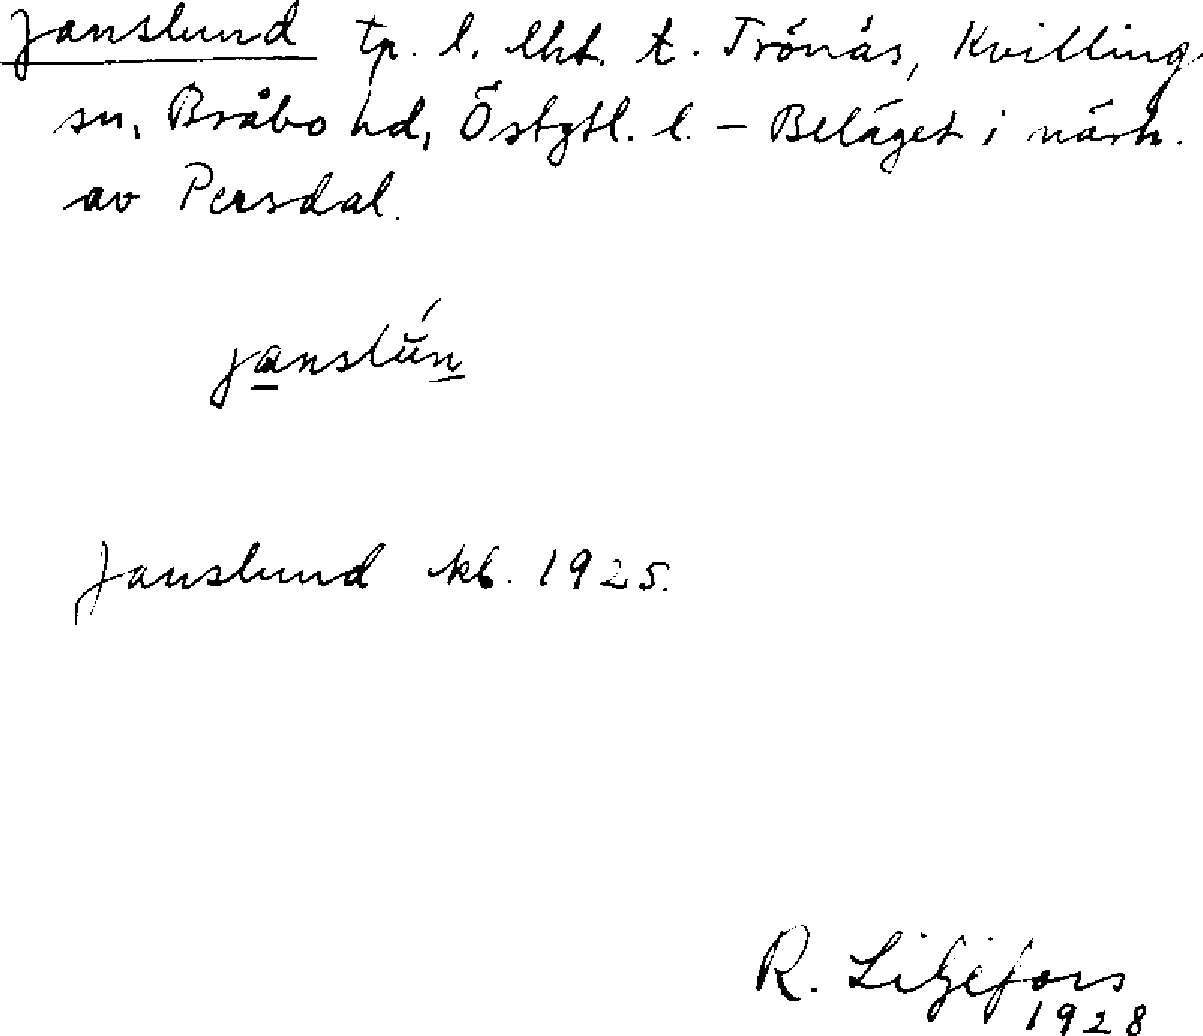 Janslund tp. l. lht. t. Trönäs, Kvillinge
sn, Bråbo hd, Östgtl. l. – Beläget i närh.
av Persdal.
janslún
Janslund kb. 1925.
R. Liljefors
1928